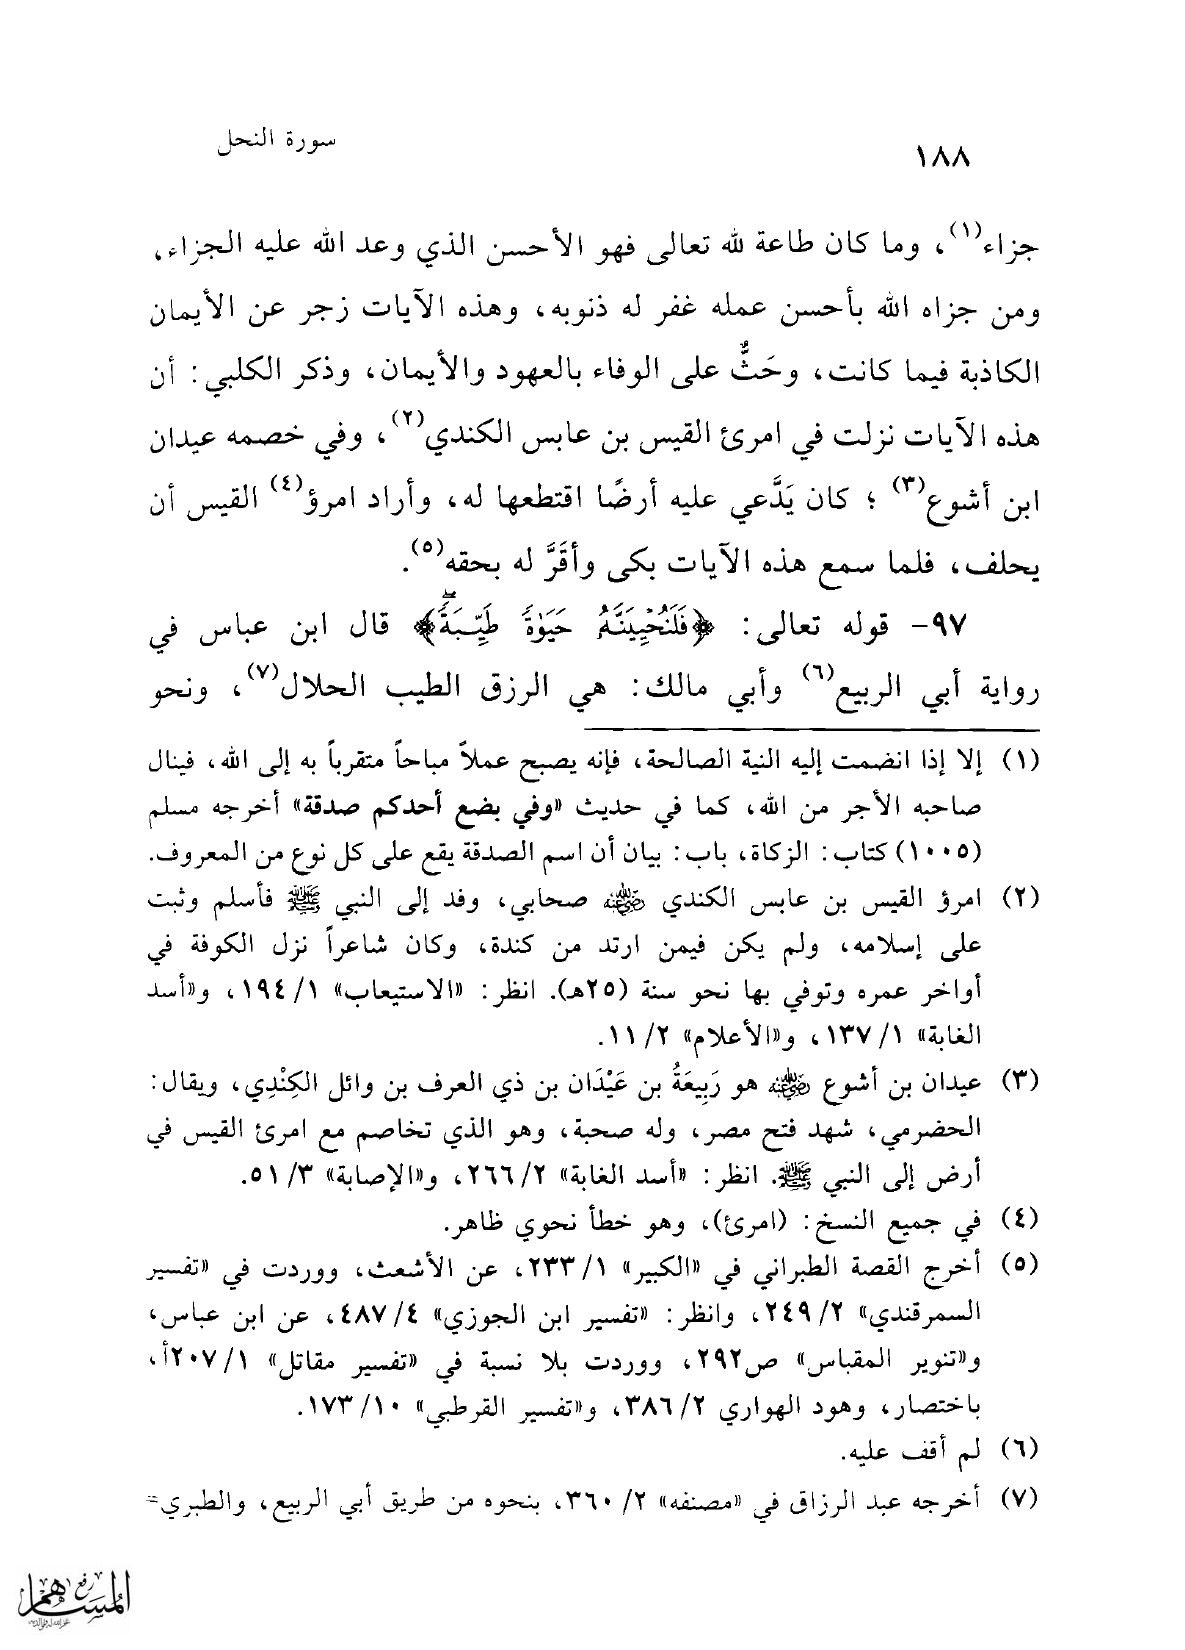 سورة النحل
١٨٨
جزاء(١)، وما كان طاعة لله تعالى فهو الأحسن الذي وعد الله عليه الجزاء،
ومن جزاه الله بأحسن عمله غفر له ذنوبه، وهذه الآيات زجر عن الأيمان
الكاذبة فيما كانت، وحَثٌّ على الوفاء بالعهود والأيمان، وذكر الكلبي: أن
هذه الآيات نزلت في امرئ القيس بن عابس الكندي(٢)، وفي خصمه عيدان
ابن أشوع(٣) ؛ كان يَدَّعي عليه أرضًا اقتطعها له، وأراد امرؤ(٤) القيس أن
يحلف، فلما سمع هذه الآيات بكى وأقَرَّ له بحقه(٥).
٩٧- قوله تعالى: ﴿فَلَنُحْيِيَنَّهُۥ حَيَوٰةً طَيِّبَةً﴾ قال ابن عباس في
رواية أبي الربيع(٦) وأبي مالك: هي الرزق الطيب الحلال(٧)، ونحو
(١) إلا إذا انضمت إليه النية الصالحة، فإنه يصبح عملاً مباحاً متقرباً به إلى الله، فينال
صاحبه الأجر من الله، كما في حديث «وفي بضع أحدكم صدقة» أخرجه مسلم
(١٠٠٥) كتاب: الزكاة، باب: بيان أن اسم الصدقة يقع على كل نوع من المعروف.
(٢) امرؤ القيس بن عابس الكندي رضي الله عنه صحابي، وفد إلى النبي ﷺ فأسلم وثبت
على إسلامه، ولم يكن فيمن ارتد من كندة، وكان شاعراً نزل الكوفة في
أواخر عمره وتوفي بها نحو سنة (٢٥هـ). انظر: «الاستيعاب» ١/ ١٩٤، و«أسد
الغابة» ١/ ١٣٧، و«الأعلام» ٢/ ١١.
(٣) عيدان بن أشوع رضي الله عنه هو رَبِيعَةُ بن عَيْدَان بن ذي العرف بن وائل الكِنْدِي، ويقال:
الحضرمي، شهد فتح مصر، وله صحبة، وهو الذي تخاصم مع امرئ القيس في
أرض إلى النبي ﷺ. انظر: «أسد الغابة» ٢/ ٢٦٦، و«الإصابة» ٣/ ٥١.
(٤) في جميع النسخ: (امرئ)، وهو خطأ نحوي ظاهر.
(٥) أخرج القصة الطبراني في «الكبير» ١/ ٢٣٣، عن الأشعث، ووردت في «تفسير
السمرقندي» ٢/ ٢٤٩، وانظر: «تفسير ابن الجوزي» ٤/ ٤٨٧، عن ابن عباس،
و«تنوير المقباس» ص٢٩٢، ووردت بلا نسبة في «تفسير مقاتل» ١/ ٢٠٧أ،
باختصار، وهود الهواري ٢/ ٣٨٦، و«تفسير القرطبي» ١٠/ ١٧٣.
(٦) لم أقف عليه.
(٧) أخرجه عبد الرزاق في «مصنفه» ٢/ ٣٦٠، بنحوه من طريق أبي الربيع، والطبري=
رفع
المساهم